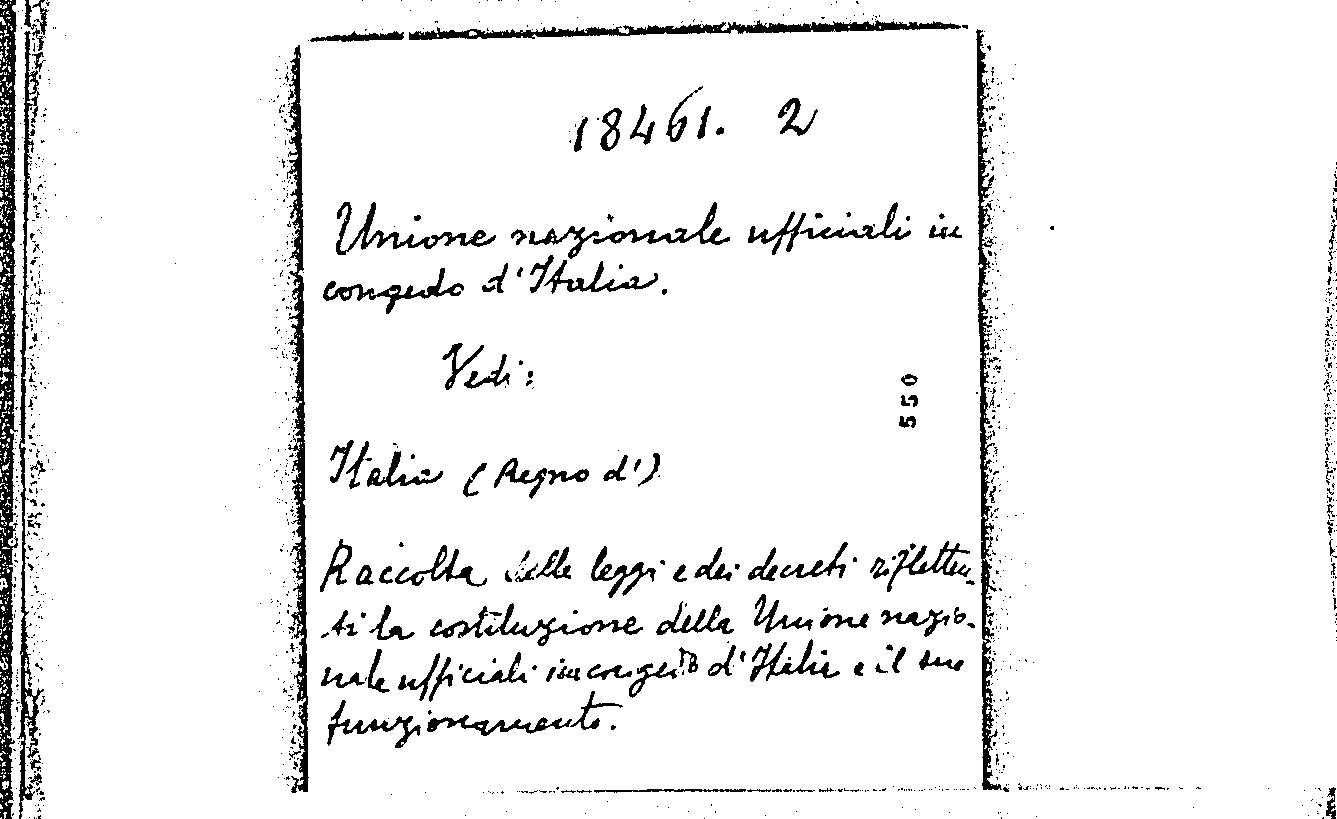 18461. 2
Unione nazionale ufficiali in
congedo d'Italia.
Vedi:
550
Italia (Regno d')
Raccolta delle leggi e dei decreti rifletten-
ti la costituzione della Unione nazio-
nale ufficiali in congedo d'Italia e il suo
funzionamento.